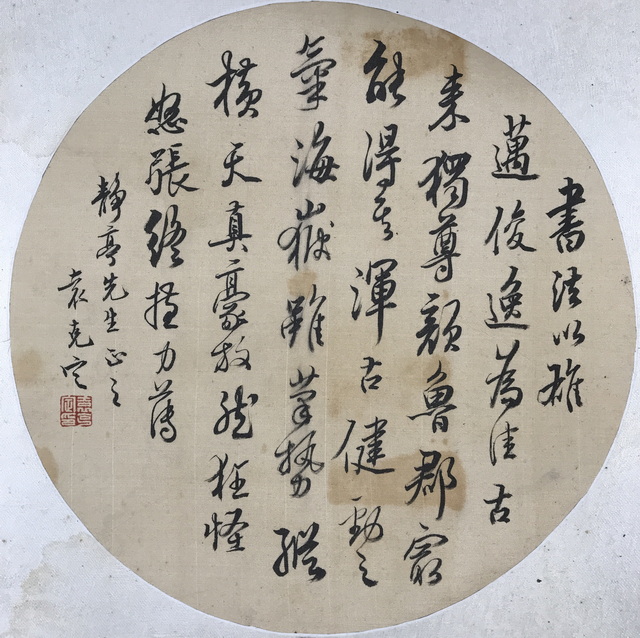 書法以雄
邁俊逸為佳古
來獨尊顏魯郡最
能得其渾古健勁之
氣海嶽雖筆勢縱
橫天真豪放然狂怪
怒張終揰力薄
靜亭先生正之
袁克定